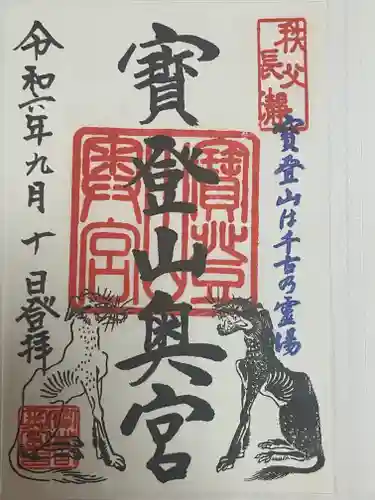 秩父
長瀞
寶登山は千古の霊場
寶登山奥宮
寶登山
奥宮
令和六年九月十日登拝